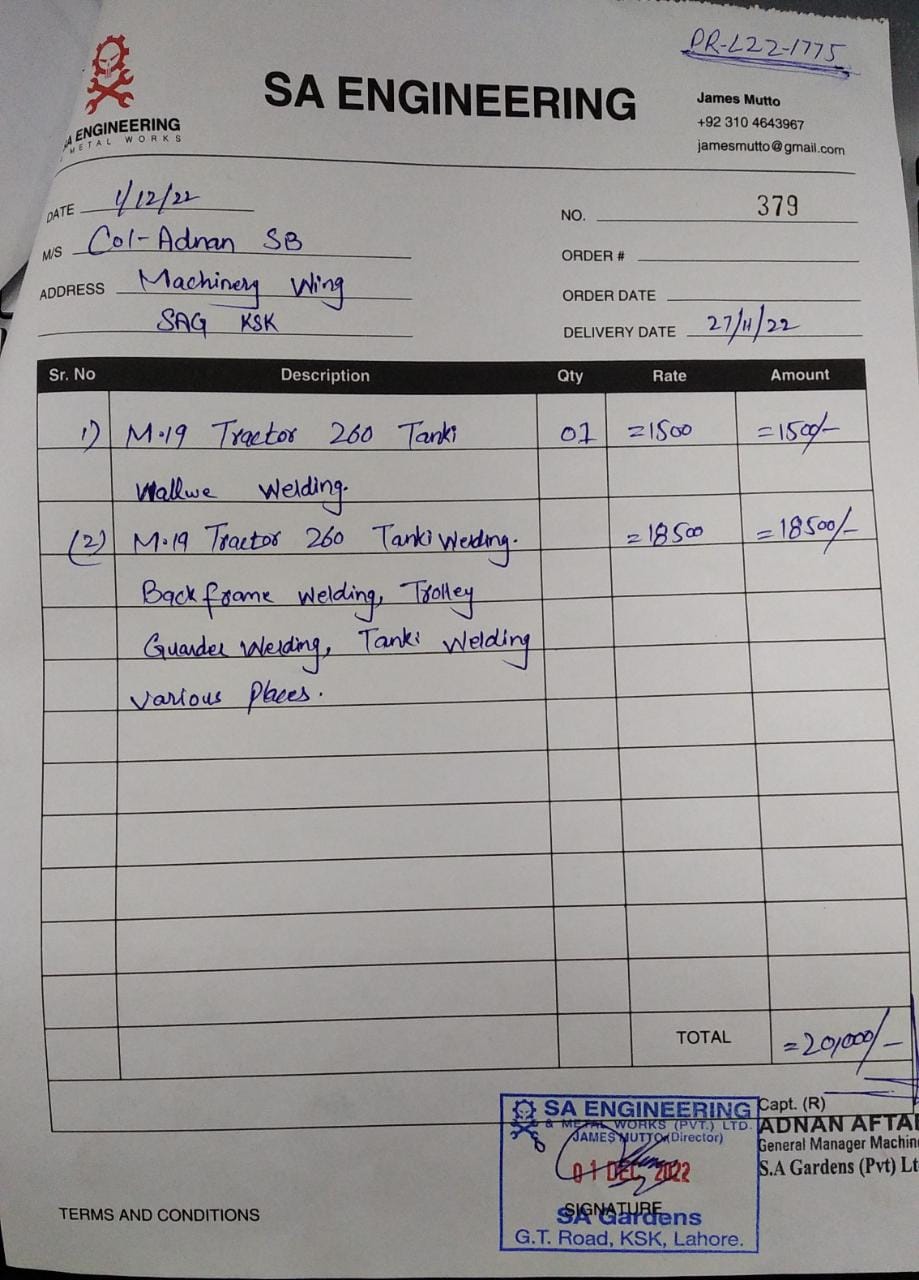 PR-L22-1775
SA ENGINEERING
James Mutto
+92 310 4643967
jamesmutto@gmail.com
A ENGINEERING
METAL WORKS
DATE 1/12/22
NO. 379
M/S Col-Adnan SB
ORDER #
ADDRESS Machinery Wing
ORDER DATE
SAG KSK
DELIVERY DATE 27/11/22
Sr. No Description Qty Rate Amount
1) M-19 Tractor 260 Tanki 01 =1500 =1500/-
Wallwe Welding.
(2) M-19 Tractor 260 Tanki Welding. =18500 =18500/-
Back frame Welding, Trolley
Guarder Welding, Tanki Welding
various Places.
TOTAL =20,000/-
SA ENGINEERING
& METAL WORKS (PVT.) LTD.
JAMES MUTTO (Director)
01 DEC 2022
SIGNATURE
SA Gardens
G.T. Road, KSK, Lahore.
Capt. (R)
ADNAN AFTA
General Manager Machin
S.A Gardens (Pvt) Lt
TERMS AND CONDITIONS